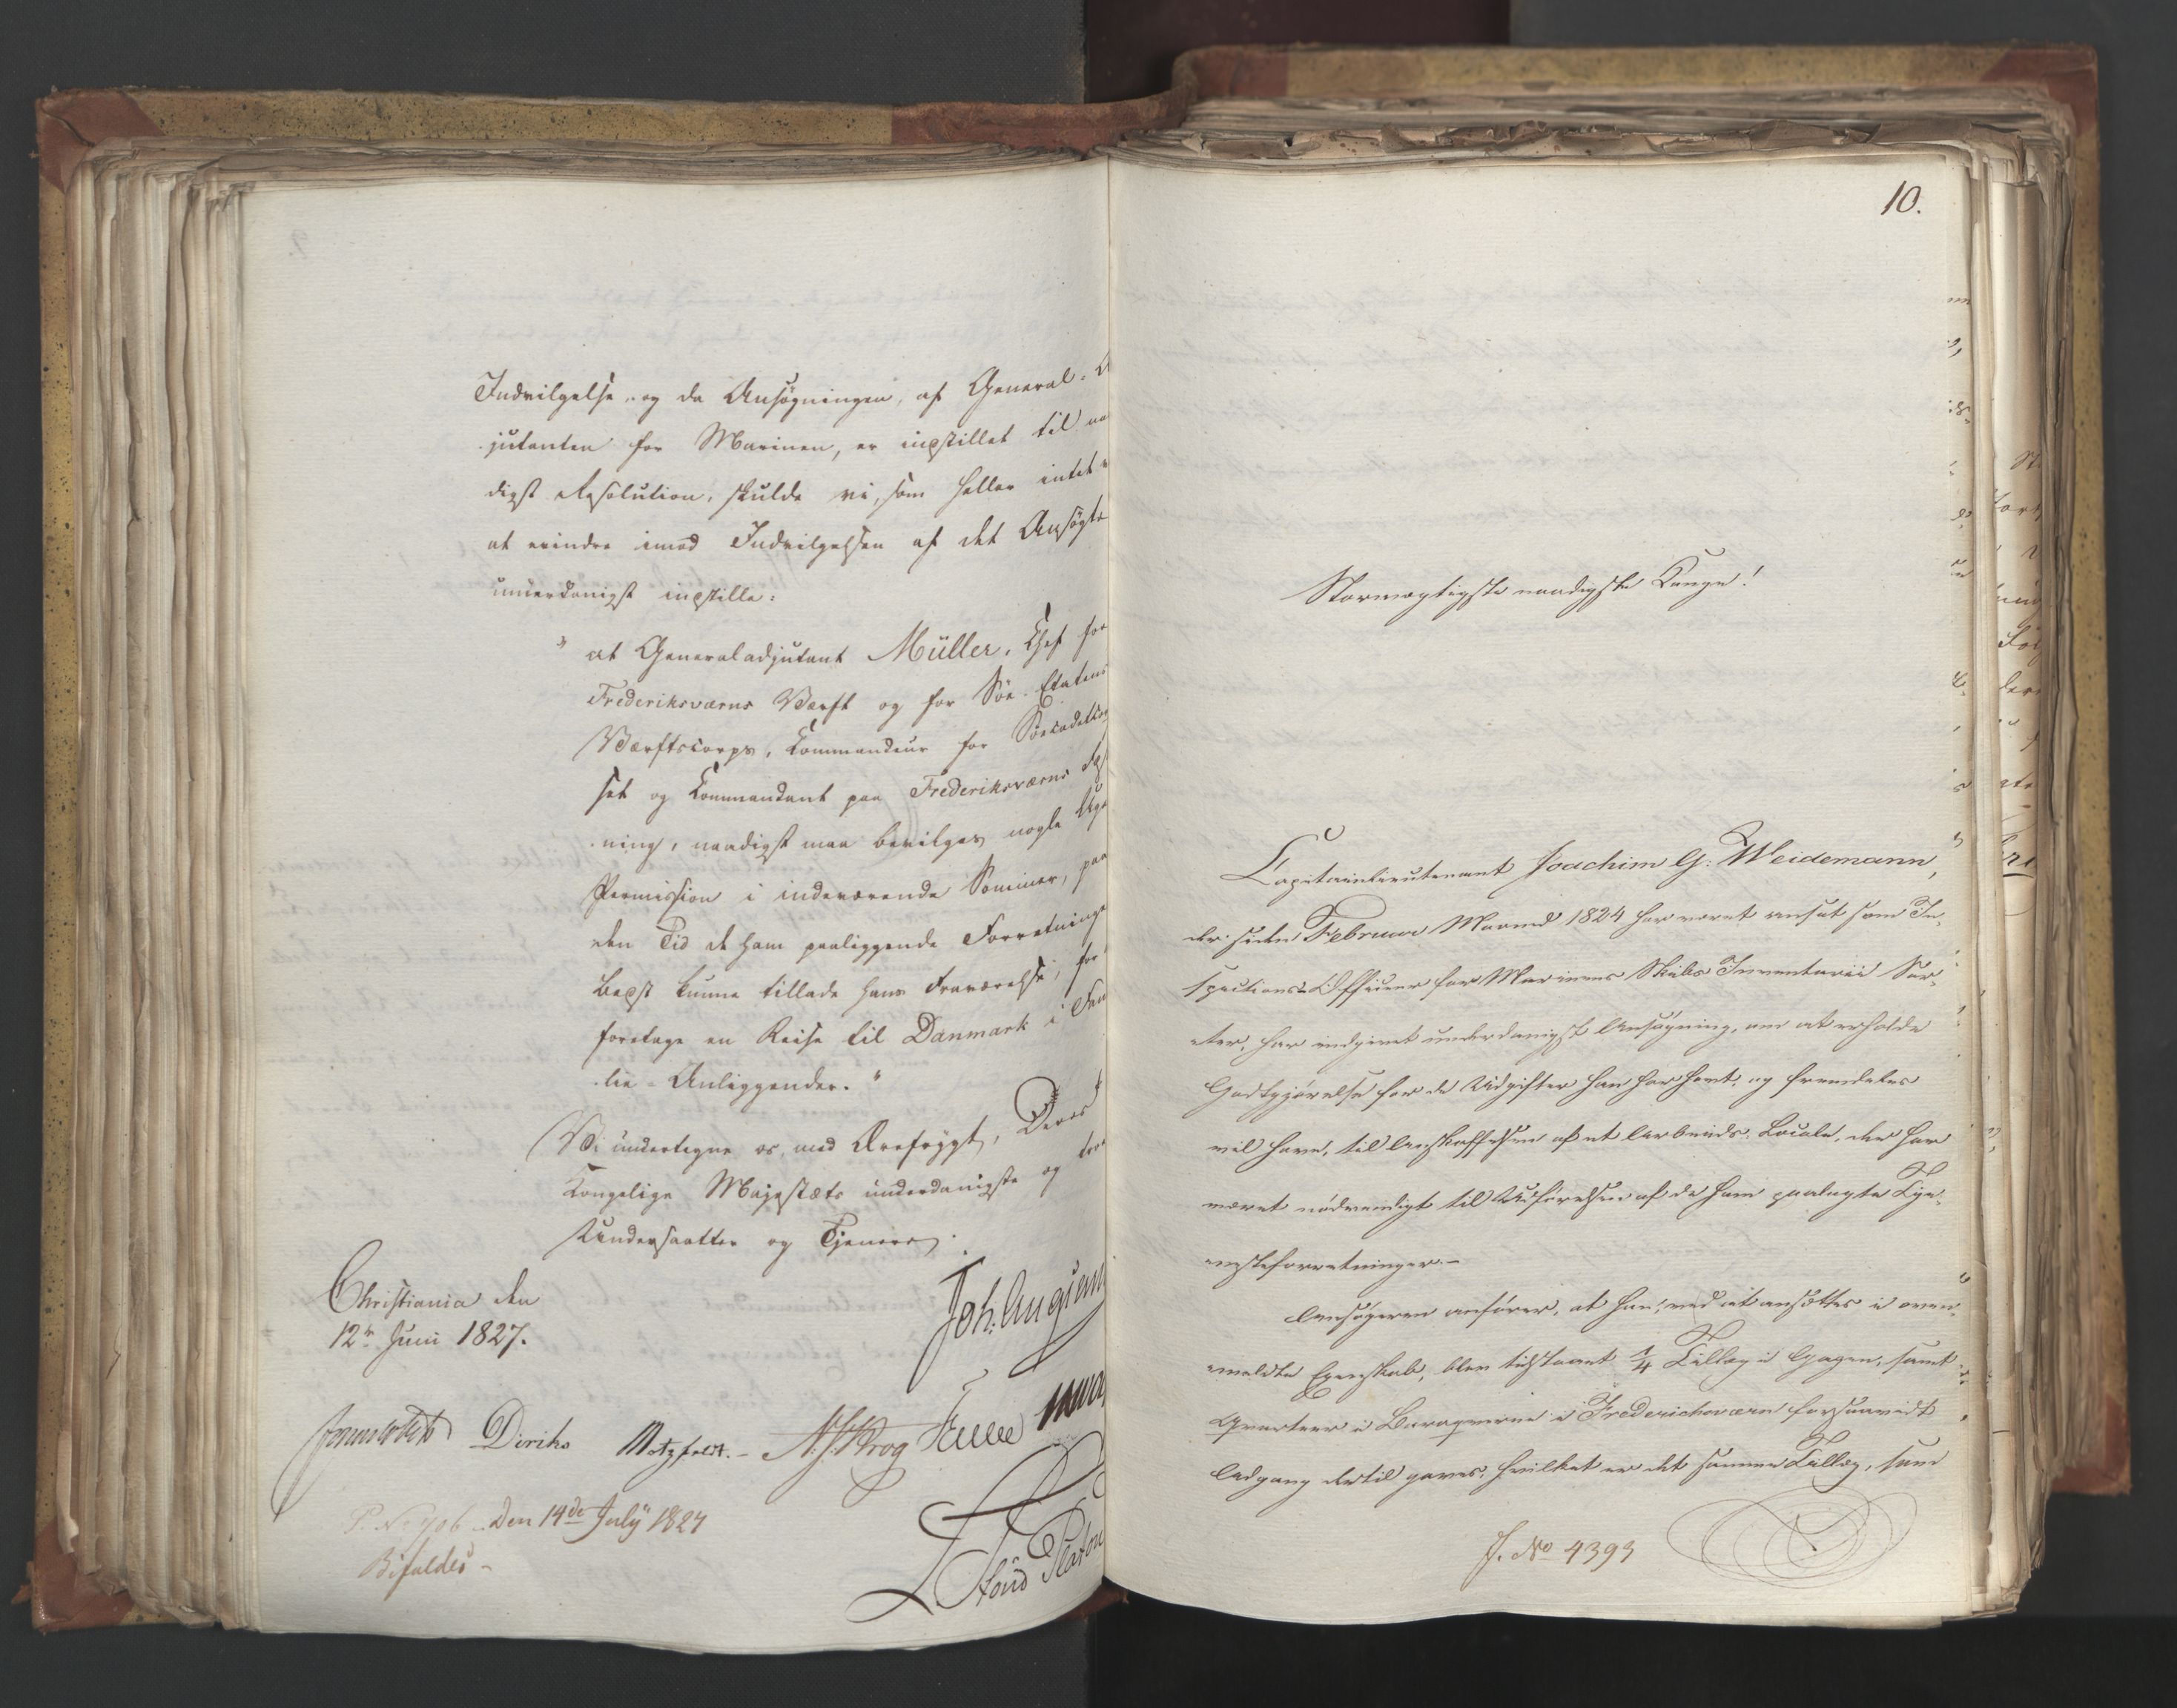 Indvilgelse, og da Ansøgningen, af General-A
jutanten for Marinen, er indstillet til naa
digst Resolution, skulde vi, som heller intet
at erindre imod Indvilgelsen af det Ansøgte
underdanigst indstille:
"at Generaladjutant Müller, Chef for
Frederiksværns Værft og for Söe-Etatens
Værftscorps, Commandeur for Søecadetcorp
set og Commandant paa Frederiksværns Fæst
ning, naadigst maa bevilges nogle Ugers
Permission i indeværende Sommer, paa
den Tid de ham paaliggende Forretninger
bedst kunne tillade hans Fraværelse, for
foretage en Reise til Danmark i Fam
lie-Anliggender."
Vi undertegne os, med Ærefrygt, Deres
Kongelige Majestæts underdanigste og troe
Undersaatter og Tjenere.
Christiania den
12te Juni 1827.
Joh. Aug. Sand
Diriks Motzfeldt. N. J. Krog
den 14de July 1827
Bifaldes -
Platou
10.
Stormægtigste naadigste Konge!
Capitainlieutenant Joachim G: Weidemann,
der siden Februar Maaned 1824 har været ansat som In-
spections-Officeer for Marinens Skibs Inventarii Sor-
ter, har indgivet underdanigst Ansøgning, om at erholde
Godtgjørelse for de Udgifter han har havt, og fremdeles
vil have, til Anskaffelsen af et Arbeids-Locale, der har
været nødvendigt til Udførelsen af de ham paalagte Tje-
nesteforretninger.-
Ansøgeren anfører, at han, ved at ansættes i oven-
meldte Egenskab, blev tilstaaet 1/4 Tillæg i Gagen, samt
Qvarteer i Baraqverne i Frederichsværn forsaavidt
Adgang dertil gaves, hvilket er det samme Tillæg, som
J. No 4393